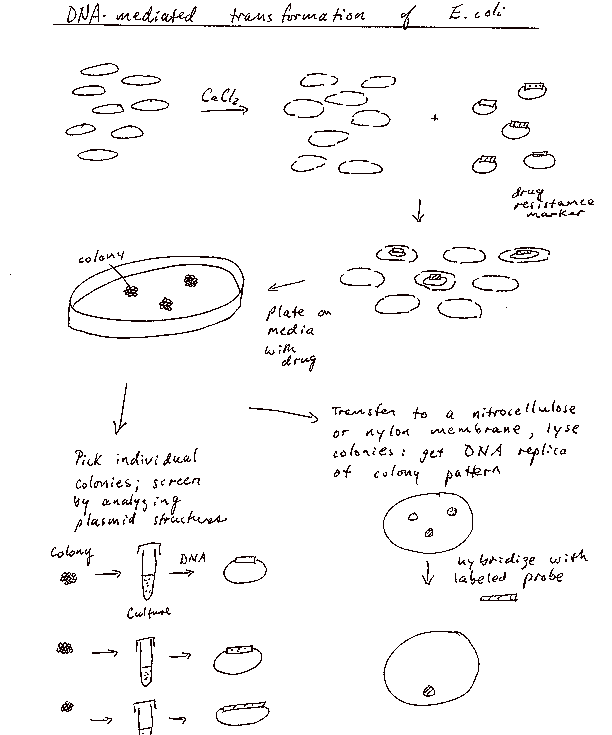 DNA-mediated transformation of E.coli
CaCl2
+
drug
resistance
marker
colony
plate on
media
with
drug
Transfer to a nitrocellulose
or nylon membrane, lyse
colonies: get DNA replica
of colony pattern
Pick individual
colonies; screen
by analyzing
plasmid structures
Colony
DNA
Culture
hybridize with
labeled probe